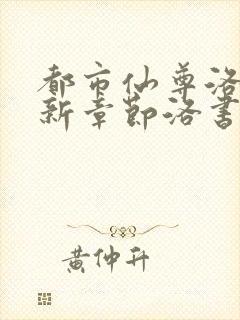 都市仙尊洛
新章节洛书
黄仲升